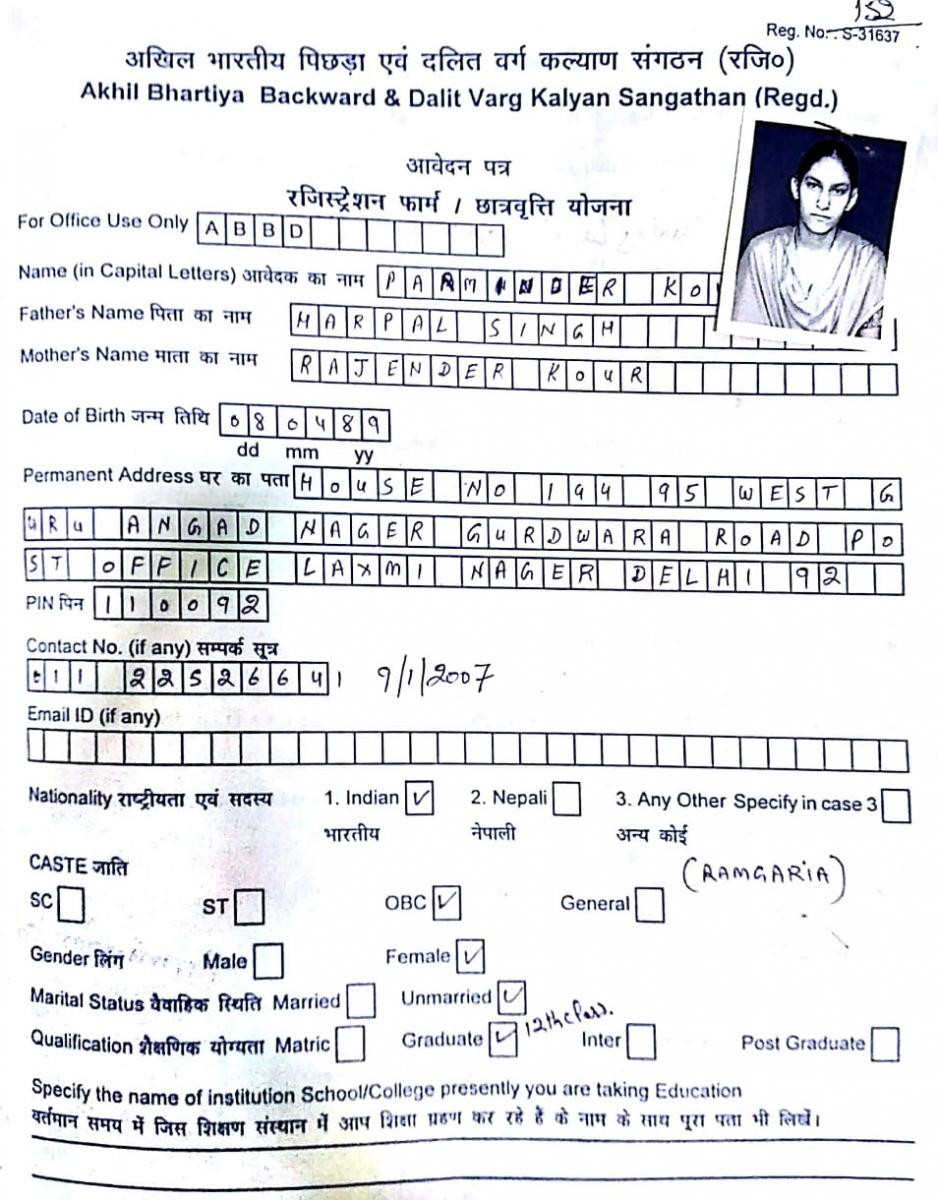 152
Reg. No:. S-31637
अखिल भारतीय पिछड़ा एवं दलित वर्ग कल्याण संगठन (रजि०)
Akhil Bhartiya Backward & Dalit Varg Kalyan Sangathan (Regd.)
आवेदन पत्र
रजिस्ट्रेशन फार्म / छात्रवृत्ति योजना
For Office Use Only ABBD
Name (in Capital Letters) आवेदक का नाम PARMINDER KO
Father's Name पिता का नाम HARPAL SINGH
Mother's Name माता का नाम RAJENDER KOUR
Date of Birth जन्म तिथि 080489
dd mm yy
Permanent Address घर का पता HOUSE NO 194 95 WEST G
URU ANGAD NAGER GURDWARA ROAD PO
ST OFFICE LAXMI NAGER DELHI 92
PIN पिन 110092
Contact No. (if any) सम्पर्क सूत्र
11 22526641 9/1/2007
Email ID (if any)
Nationality राष्ट्रीयता एवं सदस्य 1. Indian ✓ 2. Nepali 3. Any Other Specify in case 3
भारतीय नेपाली अन्य कोई
CASTE जाति (RAMGARIA)
SC ST OBC ✓ General
Gender लिंग Male Female ✓
Marital Status वैवाहिक स्थिति Married Unmarried ✓
Qualification शैक्षणिक योग्यता Matric Graduate ✓ 12th Class. Inter Post Graduate
Specify the name of institution School/College presently you are taking Education
वर्तमान समय में जिस शिक्षण संस्थान में आप शिक्षा ग्रहण कर रहे हैं के नाम के साथ पूरा पता भी लिखें।